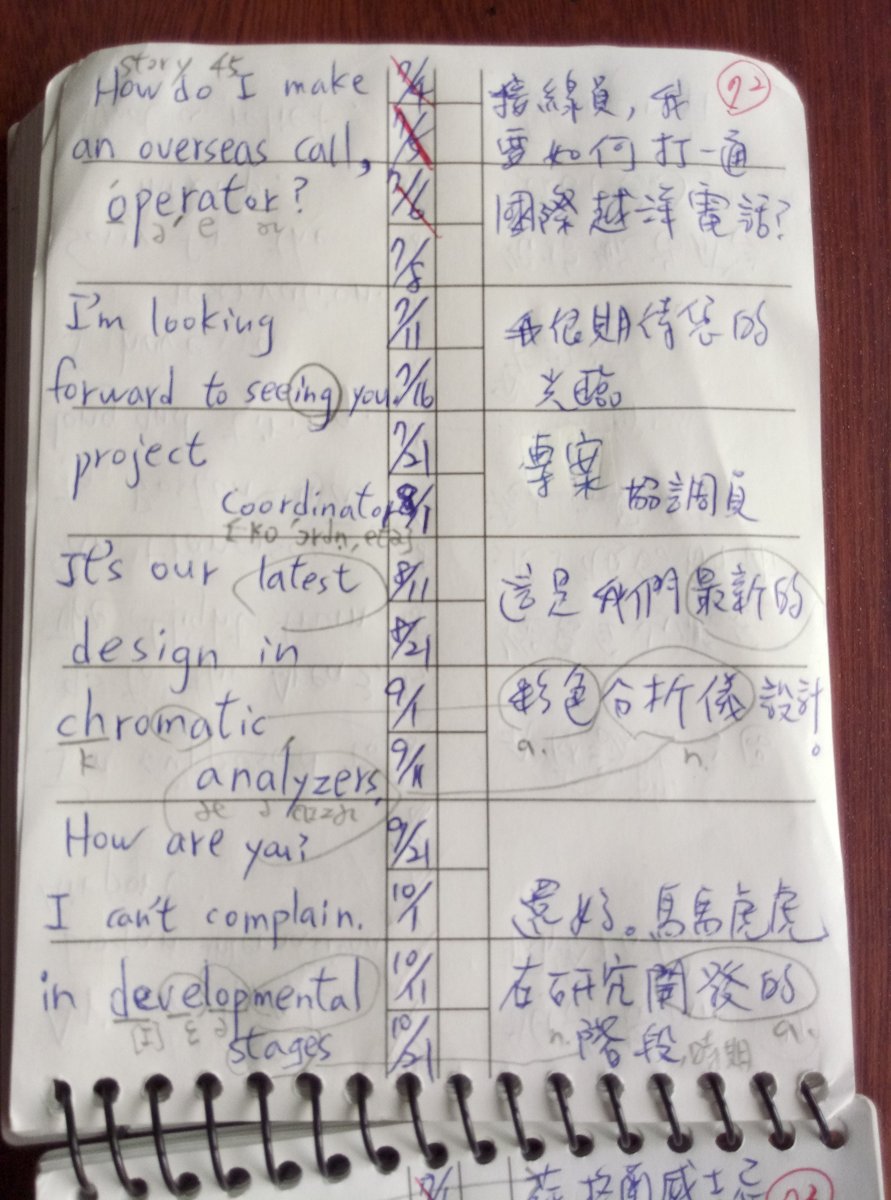 story 45
How do I make
an overseas call,
operator?
ə e ɚ
I'm looking
forward to seeing you.
project
coordinator
It's our latest
design in
chromatic
k
analyzers.
How are you?
I can't complain.
in developmental
[I] ɛ ə
stages
7/4
7/5
7/6
7/8
7/11
7/16
7/21
8/1
8/11
8/21
9/1
9/11
9/21
10/1
10/11
10/21
92
接線員,我
要如何打一通
國際越洋電話?
我很期待您的
光臨
專案
協調員
這是我們最新的
彩色分析儀設計!
a. n.
還好。馬馬虎虎
在研究開發的
n. 階段,時期 a.